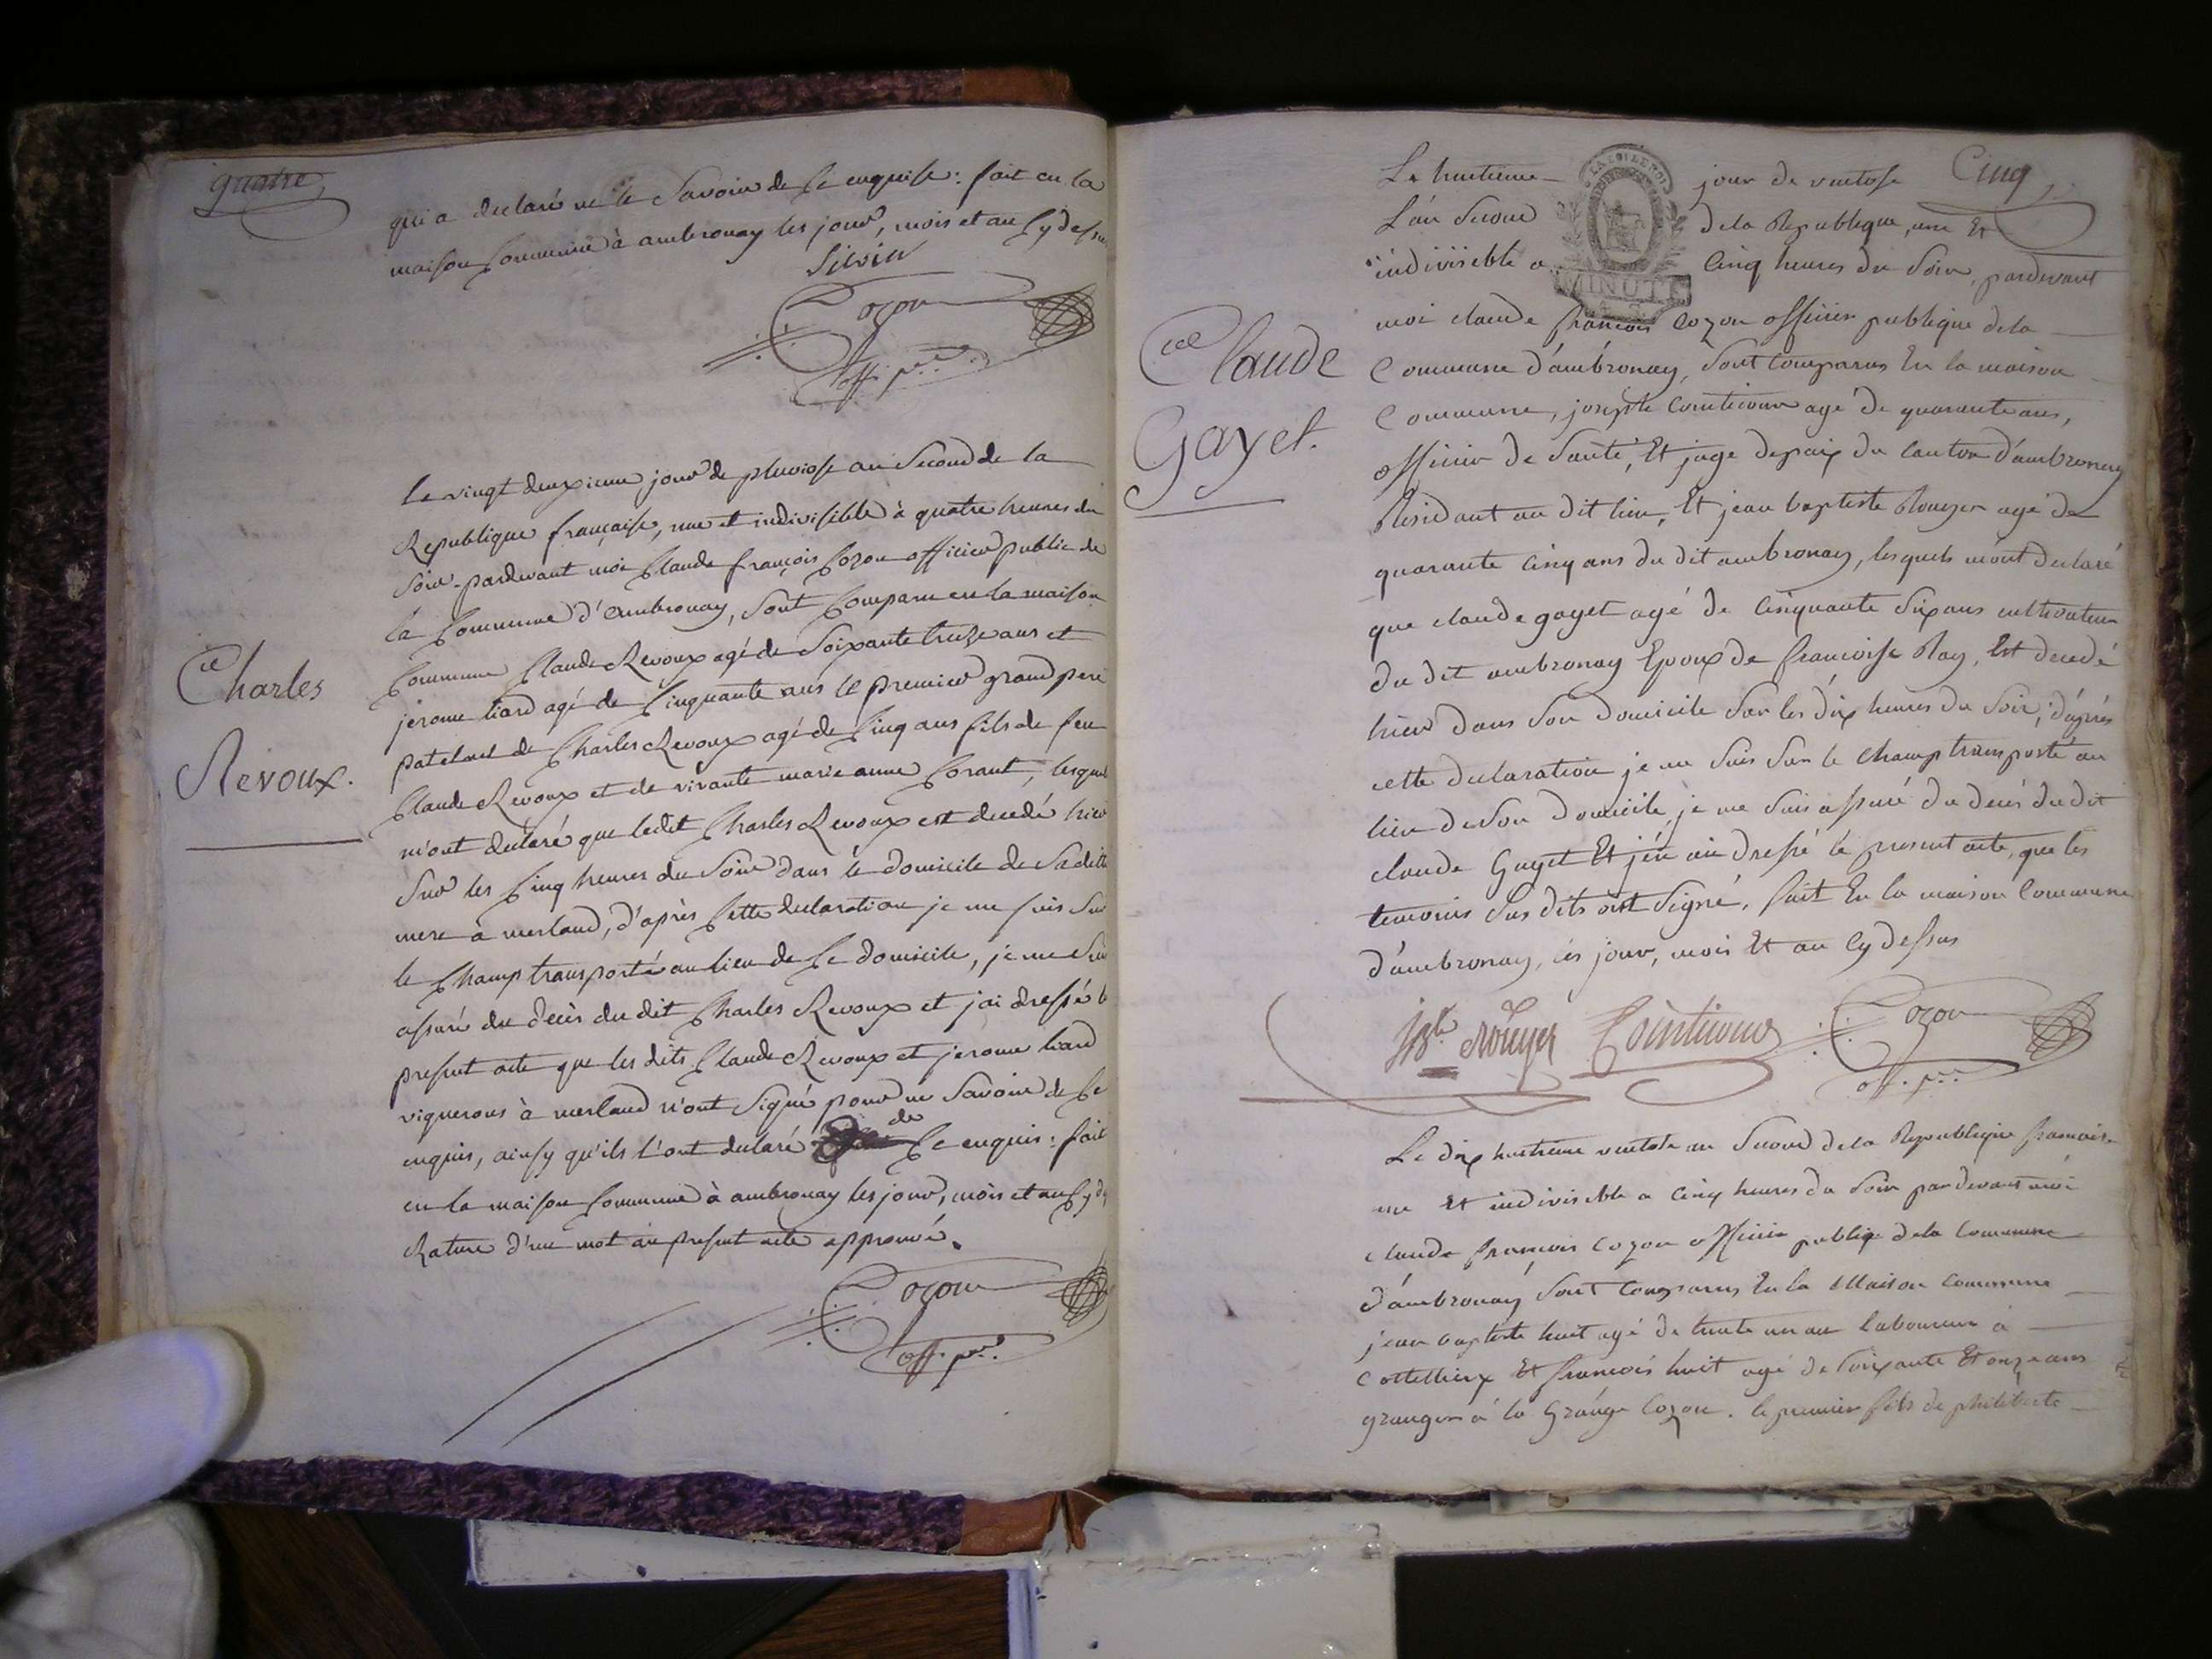 quatre
qui a declaré ne le Savoir de Ce enquise : fait en la
maison Commune à ambronay les jour, mois et an Cy dessus
Silvin
Cozon
off. p.er
le vingt deuxieme jour de pluviose an Second de la
Republique française, une et indivisible à quatre heures du
Soir pardevant moi Claude françois Cozon officier public de
la Commune d'Ambronay, Sont Comparu en la maison
Commune Claude Revoux agé de Soixante treize ans et
jerome liard agé de Cinquante ans le premier grand pere
paternel de Charles Revoux agé de Cinq ans fils de feu
Claude Revoux et de vivante marie anne , lesquels
m'ont declaré que ledit Charles Revoux est decedé hier
Sur les Cinq heures du Soir dans le domicile de Sadite
mere à merland, d'après Cette declaration je me suis Sur
le Champ transporté au lieu de Ce domicile, je me Suis
assuré du decès du dit Charles Revoux et j'ai dressé le
present acte que les dits Claude Revoux et jerome liard
vignerons à merland n'ont Signé pour ne Savoir de Ce
enquis, ainsy qu'ils l'ont declaré de Ce enquis : fait
en la maison Commune à ambronay les jour, mois et an Cy d
Rature d'un mot au present acte approuvé.
Cozon
off. p.er
Charles
Revoux.
Cinq
Le huitieme jour de ventose
L'an Second de la Republique, une Et
indivisible a Cinq heures du Soir, pardevant
LA LOI LE ROI
MINUTE
moi claude françois Cozon officier publique de la
Commune d'ambronay, Sont Comparus En la maison
Commune, joseph Cointicour agé de quarante ans,
officier de Santé, Et juge depaix du Canton d'ambronay
Residant au dit lieu, Et jean baptiste Rouyer agé de
quarante Cinq ans du dit ambronay, lesquels m'ont declaré
que claude gayet agé de Cinquante Six ans cultivateur
du dit ambronay Epoux de francoise Ray, Est decedé
hier dans Son Domicile Sur les dix heures du Soir, d'après
cette declaration je me Suis Sur le Champ transporté au
lieu deSon Domicile, je me Suis assuré du decès du dit
claude Gayet Et j'en ai dressé le present acte, que les
temoins Sus dits ont Signé, fait En la maison Commune
d'ambronay, les jour, mois Et an Cy dessus
JBte Rouyer Cointicour Cozon
off. p.er
Claude
Gayet.
Le dix huitieme ventose an Second de la Republique francaise
une Et indivisible a Cinq heures du Soir pardevant moi
claude francois Cozon officier publiq dela Commune
d'ambronay Sont Comparus En la Maison Commune
jean baptiste huit agé de trente un an laboureur à
Et francois huit agé de Soixante Et onze ans
granger à la Grange Cozon. le premier fils de philiberte